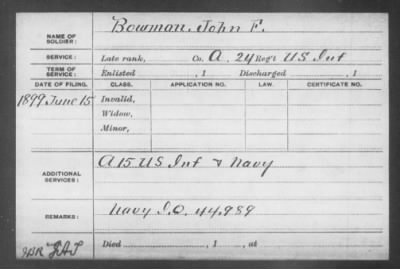 NAME OF SOLDIER: Bowman, John F.
SERVICE: Late rank, Co. A. 24 Reg't US Inf
TERM OF SERVICE: Enlisted , 1 Discharged , 1
DATE OF FILING. CLASS. APPLICATION NO. LAW. CERTIFICATE NO.
1899 June 15 Invalid,
Widow,
Minor,
ADDITIONAL SERVICES: A 15 US Inf & Navy
REMARKS: Navy I.O. 44,989
Died , 1 , at